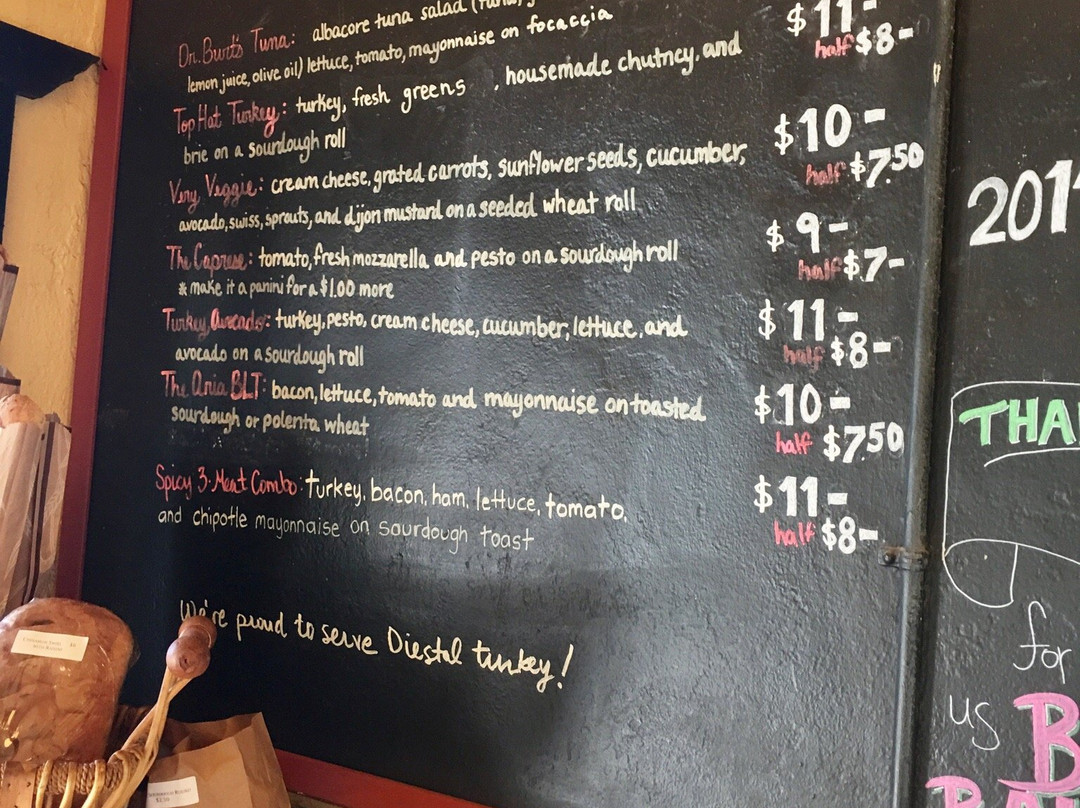 Dr. Burt's Tuna: albacore tuna salad
lemon juice, olive oil) lettuce, tomato, mayonnaise on focaccia
Top Hat Turkey: turkey, fresh greens , housemade chutney, and
brie on a sourdough roll
$11-
half $8-
Very Veggie: cream cheese, grated carrots, sunflower seeds, cucumber,
avocado, swiss, sprouts, and dijon mustard on a seeded wheat roll
$10-
half $7.50
The Caprese: tomato, fresh mozzarella and pesto on a sourdough roll
* make it a panini for a $1.00 more
$9-
half $7-
Turkey Avocado: turkey, pesto, cream cheese, cucumber, lettuce, and
avocado on a sourdough roll
$11-
half $8-
The Aria BLT: bacon, lettuce, tomato and mayonnaise on toasted
sourdough or polenta wheat
$10-
half $7.50
Spicy 3-Meat Combo: turkey, bacon, ham, lettuce, tomato,
and chipotle mayonnaise on sourdough toast
$11-
half $8-
We're proud to serve Diestal turkey!
201
THA
for
us
B